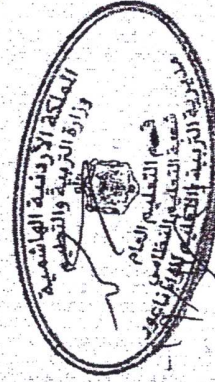 المملكة الأردنية الهاشمية
وزارة التربية والتعليم
قسم التعليم العام
شعبة التعليم النظامي
مديرية التربية والتعليم للواء ناعور